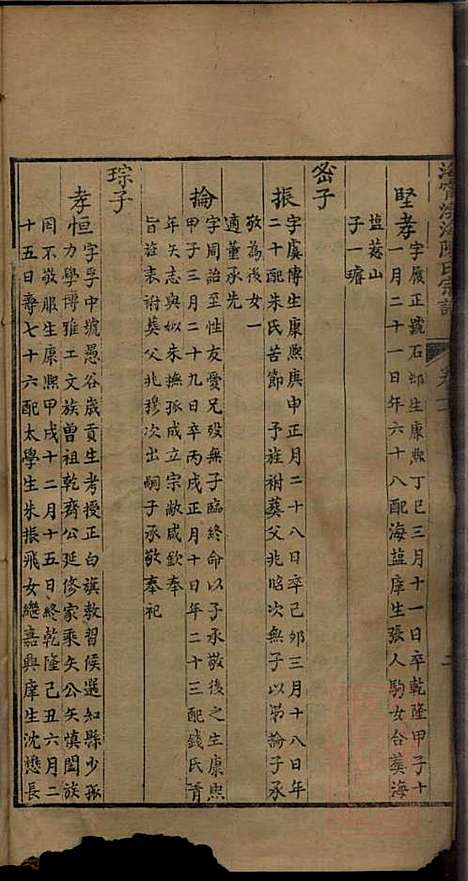 海寧渤海陳氏宗譜
堅孝
字履正號石邨生康熙丁巳三月十一日卒乾隆甲子十
一月二十一日年六十八配海鹽庠生張人駒女合葬海
鹽葱山
子一璿
密子
振
字虞傳生康熙庚申正月二十八日卒己卯三月十八日年
二十配朱氏苦節 予旌祔葬父兆昭次無子以弟論子承
敬為後女一
適董承先
掄
字周詒至性友愛兄歿無子臨終命以子承敬後之生康熙
甲子三月二十九日卒丙戌正月十日年二十三配錢氏青
年矢志與姒朱撫孤成立宗敵咸欽奉
旨旌表祔葬父兆穆次出嗣子承敬奉祀
琮子
孝恒
字孚中號愚谷歲貢生考授正白旗教習候選知縣少孤
力學博雅工文族曾祖乾齋公延修家乘矢公矢慎闔族
罔不敬服生康熙甲戌十二月十五日終乾隆己丑六月二
十五日壽七十六配太學生朱振飛女繼嘉興庠生沈懋長